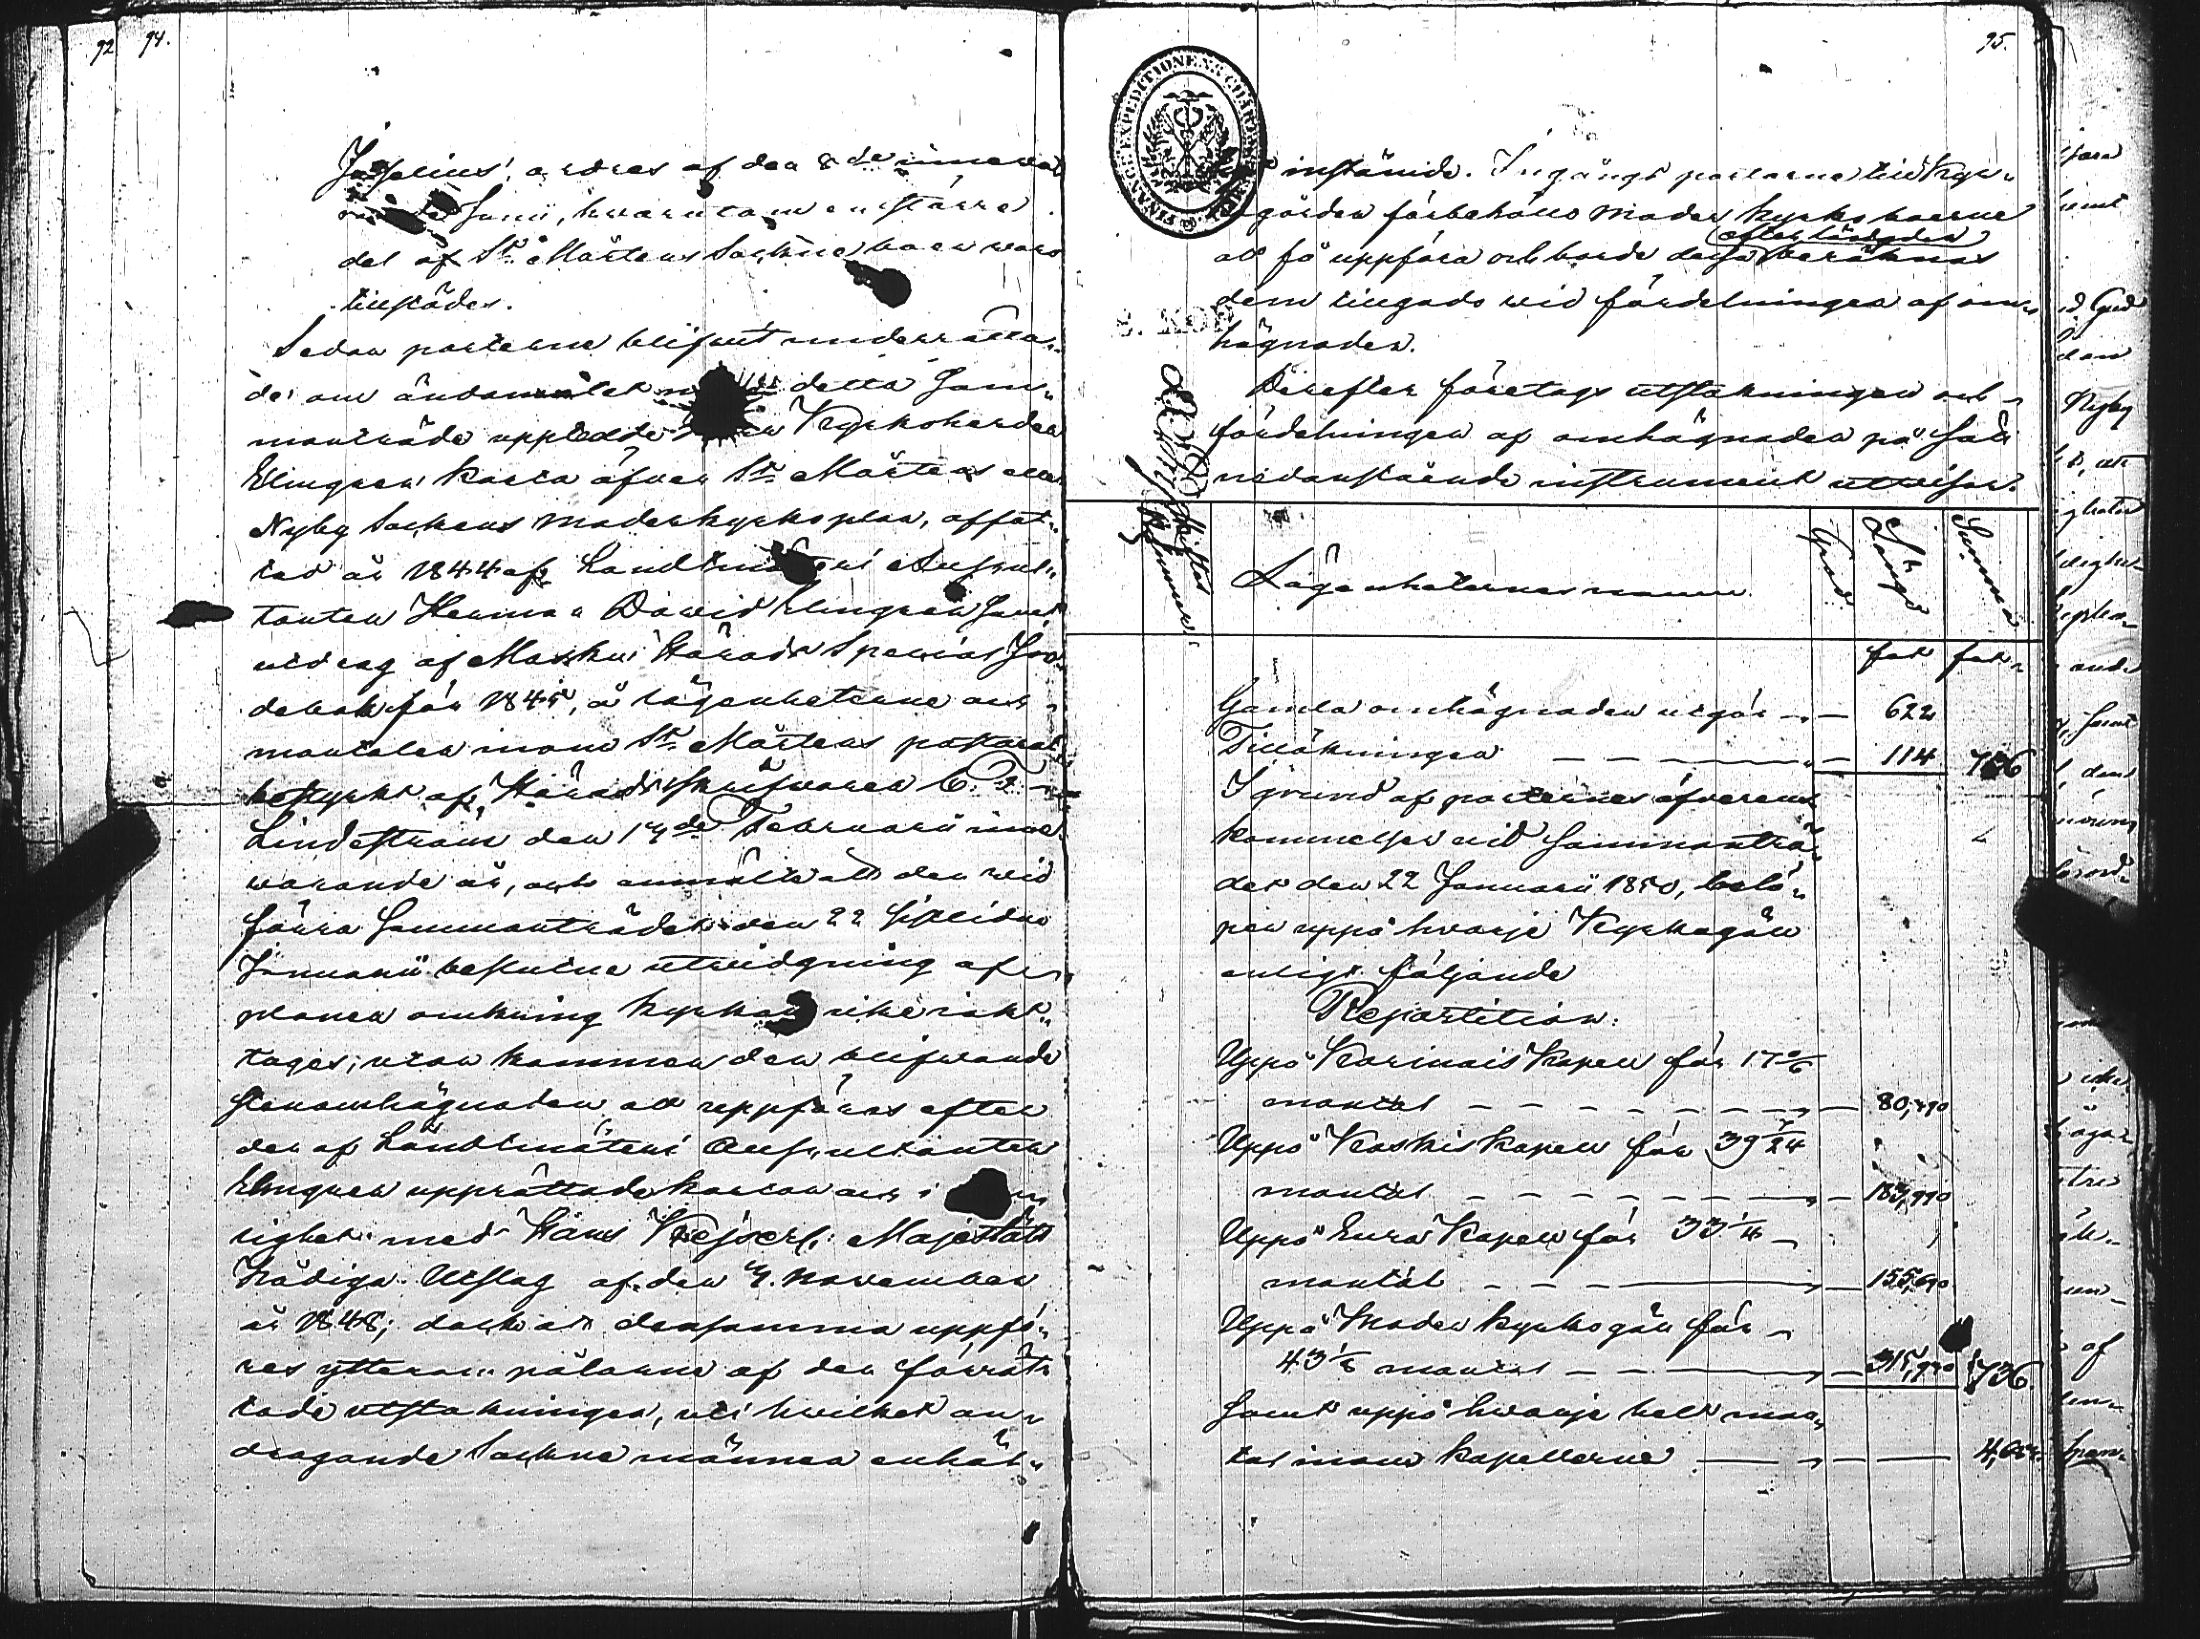 92 94.
ordres af den 8de innewa-
Junii, hwarutom en större
del af St Mårtens Sockne boer woro
tillstädes.
Sedan parterne blifwit underrätta-
de om ändamålet med detta Sam-
manträde upplädde Kyrkoherden
Elmgren karta öfwer St Mårtens eller
Nyby Sockens moderkyrkoplan, affat-
tad år 1844 af Landtmäteri Auscul-
tanten Herman Dawid Elmgren samt
utdrag af Masku Härads Special Jor-
debok för 1845, å lägenheterne och
mantalen inom St Mårtens pastorat
bestyrkt af Häradsskrifwaren C. F.
Lindström den 14de Februarii inne-
warande år, och anmälte att den wid
förra Sammanträdet den 22 sistlidne
Januarii beslutne utwidgning af
planen omkring kyrkan icke iakt-
tages, utan kommer den blifwande
stenomhägnaden att uppföras efter
den af Landtmäteri Auscultanten
Elmgren upprättade kartan och i
lighet med Hans Kejserl. Majestäts
Nådiga Utslag af den 7. November
år 1848; dock att densamma uppfö-
res ytterom pålarne af den förrät-
tade utstakningen, uti hwilket an-
dragande Sockne männen enhäl-
95.
FINANCE EXPEDITIONENS CHARTÆ
instämde. Ingångs portarne till Kyr-
kogården förbehöllo Moder kyrkoboerne
efter längden
att få uppföra och borde dessa beräknas
dem tillgodo wid fördelningen af om-
hägnaden.
Derefter företogs utstakningen och
fördelningen af omhägnaden på sätt
nedanstående instrument utwisar.
Skiftes Nummer
Lägenheternes namn
Grad
Längd
Summa
fot fot
Gamla omhägnaden utgör — 622
Tillökningen — 114 736
I grund af parternes öfverens
kommelse wid Sammanträ-
det den 22 Januarii 1850, belö-
per uppå hwarje Kyrkogäll
enligt följande
Repartition:
Uppå Karinais Kapell för 17
mantal — 80,
Uppå Koskis kapell för 39 7/24
mantal —
Uppå Eura Kapell för 33 1/4
mantal —
Uppå Moder kyrkogäll för
43 1/6 mantal — 736.
Samt uppå hwarje helt man-
tal inom kapellerne —